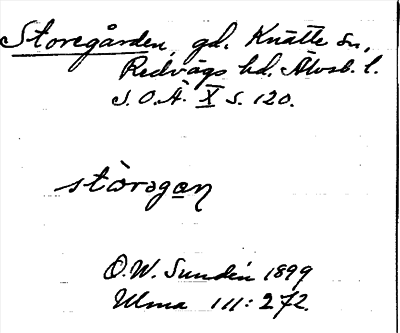 Storegården, gd. Knätte sn,
Redvägs hd. Älvsb. l.
S.O.Ä. X s. 120.
stòrəgən
O.W. Sundén 1899
Ulma 111:272.